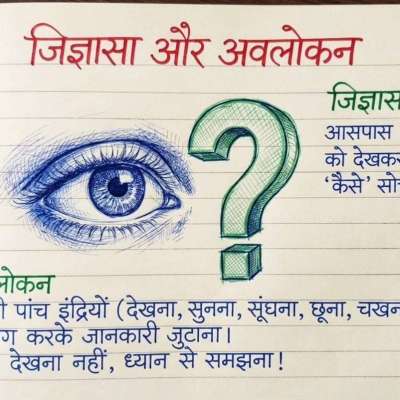 जिज्ञासा और अवलोकन
आसपास
को देखकर
'कैसे'
पांच इंद्रियों (देखना, सुनना, सूंघना, छूना,
करके जानकारी जुटाना।
देखना नहीं, ध्यान से समझना!